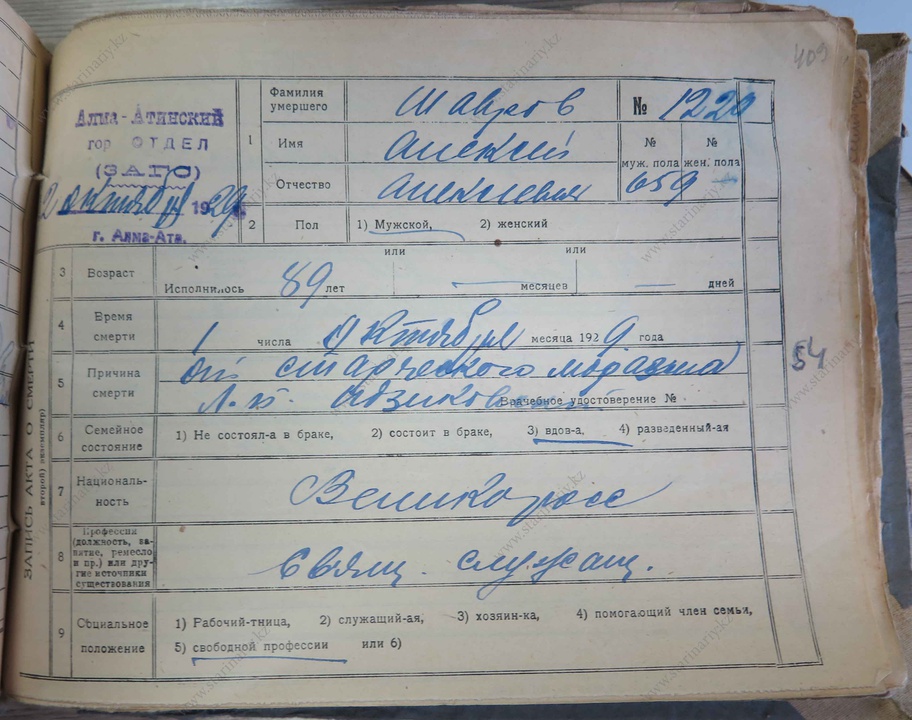 409
Алма-Атинский
гор ОТДЕЛ
(ЗАГС)
2 октября 1929
г. Алма-Ата.
ЗАПИСЬ АКТА О СМЕРТИ
второй) экземпляр)
1
Фамилия умершего
Шавров
№ 1220
Имя
Алексей
№ муж. пола
№ жен. пола
Отчество
Алексеевич
659 —
2 Пол 1) Мужской, 2) женский
3 Возраст Исполнилось 89 лет или — месяцев или — дней
4 Время смерти 1 числа Октября месяца 1929 года
54
5 Причина смерти
от старческого маразма
Врачебное удостоверение №
6 Семейное состояние 1) Не состоял-а в браке, 2) состоит в браке, 3) вдов-а, 4) разведенный-ая
7 Националь-ность Великоросс
8 Профессия (должность, за-нятие, ремесло и пр.) или дру-гие источники существования
Свящ. служащ.
9 Социальное положение
1) Рабочий-тница, 2) служащий-ая, 3) хозяин-ка, 4) помогающий член семьи,
5) свободной профессии или 6)
www.starinariy.kz